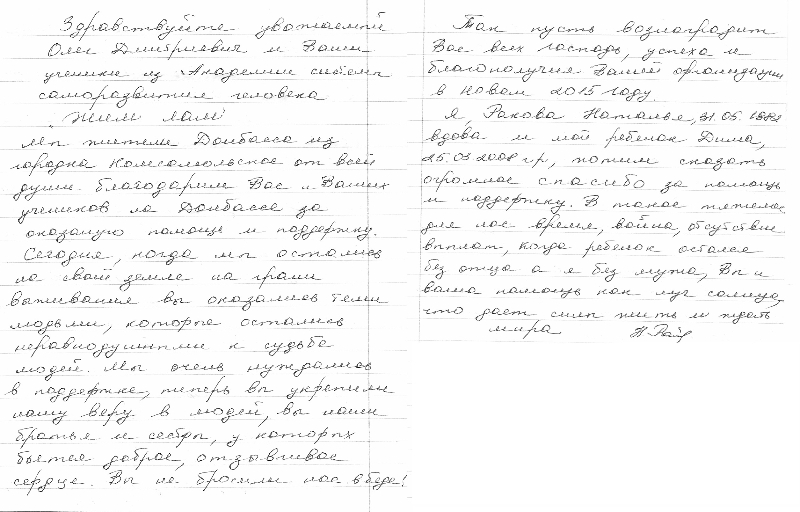 Здравствуйте уважаемый
Олег Дмитриевич и Ваши
ученики из Академии систем
саморазвития человека
Мы жители Донбасса из
городка Комсомольское от всей
души благодарим Вас и Ваших
учеников на Донбассе за
оказаную помощь и поддержку.
Сегодня, когда мы остались
на своей земле на грани
выживания вы оказались теми
людьми, которые остались
неравнодушными к судьбе
людей. Мы очень нуждались
в поддержке, теперь вы укрепили
нашу веру в людей, вы наши
братья и сестры, у которых
бьется доброе, отзывчивое
сердце. Вы не бросили нас в беде!
Так пусть вознаградит
Вас всех Господь, успеха и
благополучия Вашей организации
в Новом 2015 году.
Я, Ракова Наталья, 31.05.
вдова и мой ребенок Дима,
25.03.2008 г.р, хотим сказать
огромное спасибо за помощь
и поддержку. В такое тяжелое
для нас время, война, отсутствие
выплат, когда ребенок остался
без отца а я без мужа, Вы и
ваша помощь как луч солнца,
что дает силы жить и ждать
мира